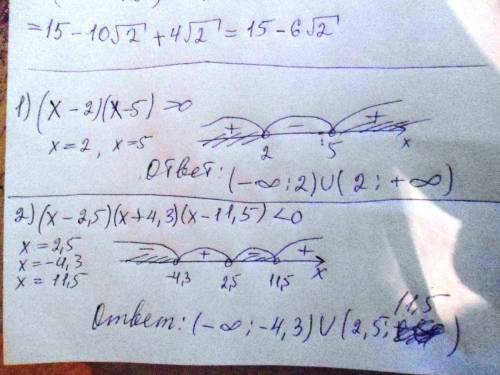 =15-10√2 +4√2 = 15-6√2
1) (x-2)(x-5)>0
x=2, x=5
+ - +
2 5 x
Ответ: (-∞;2)∪(2;+∞)
2) (x-2,5)(x+4,3)(x-11,5)<0
x=2,5
x=-4,3
x=11,5
- + - +
-4,3 2,5 11,5 x
Ответ: (-∞;-4,3)∪(2,5; 11,5)